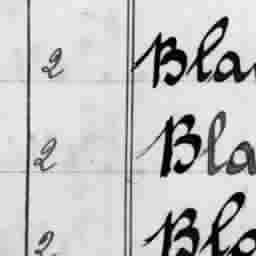 2 Bla
2 Bla
2 Bla